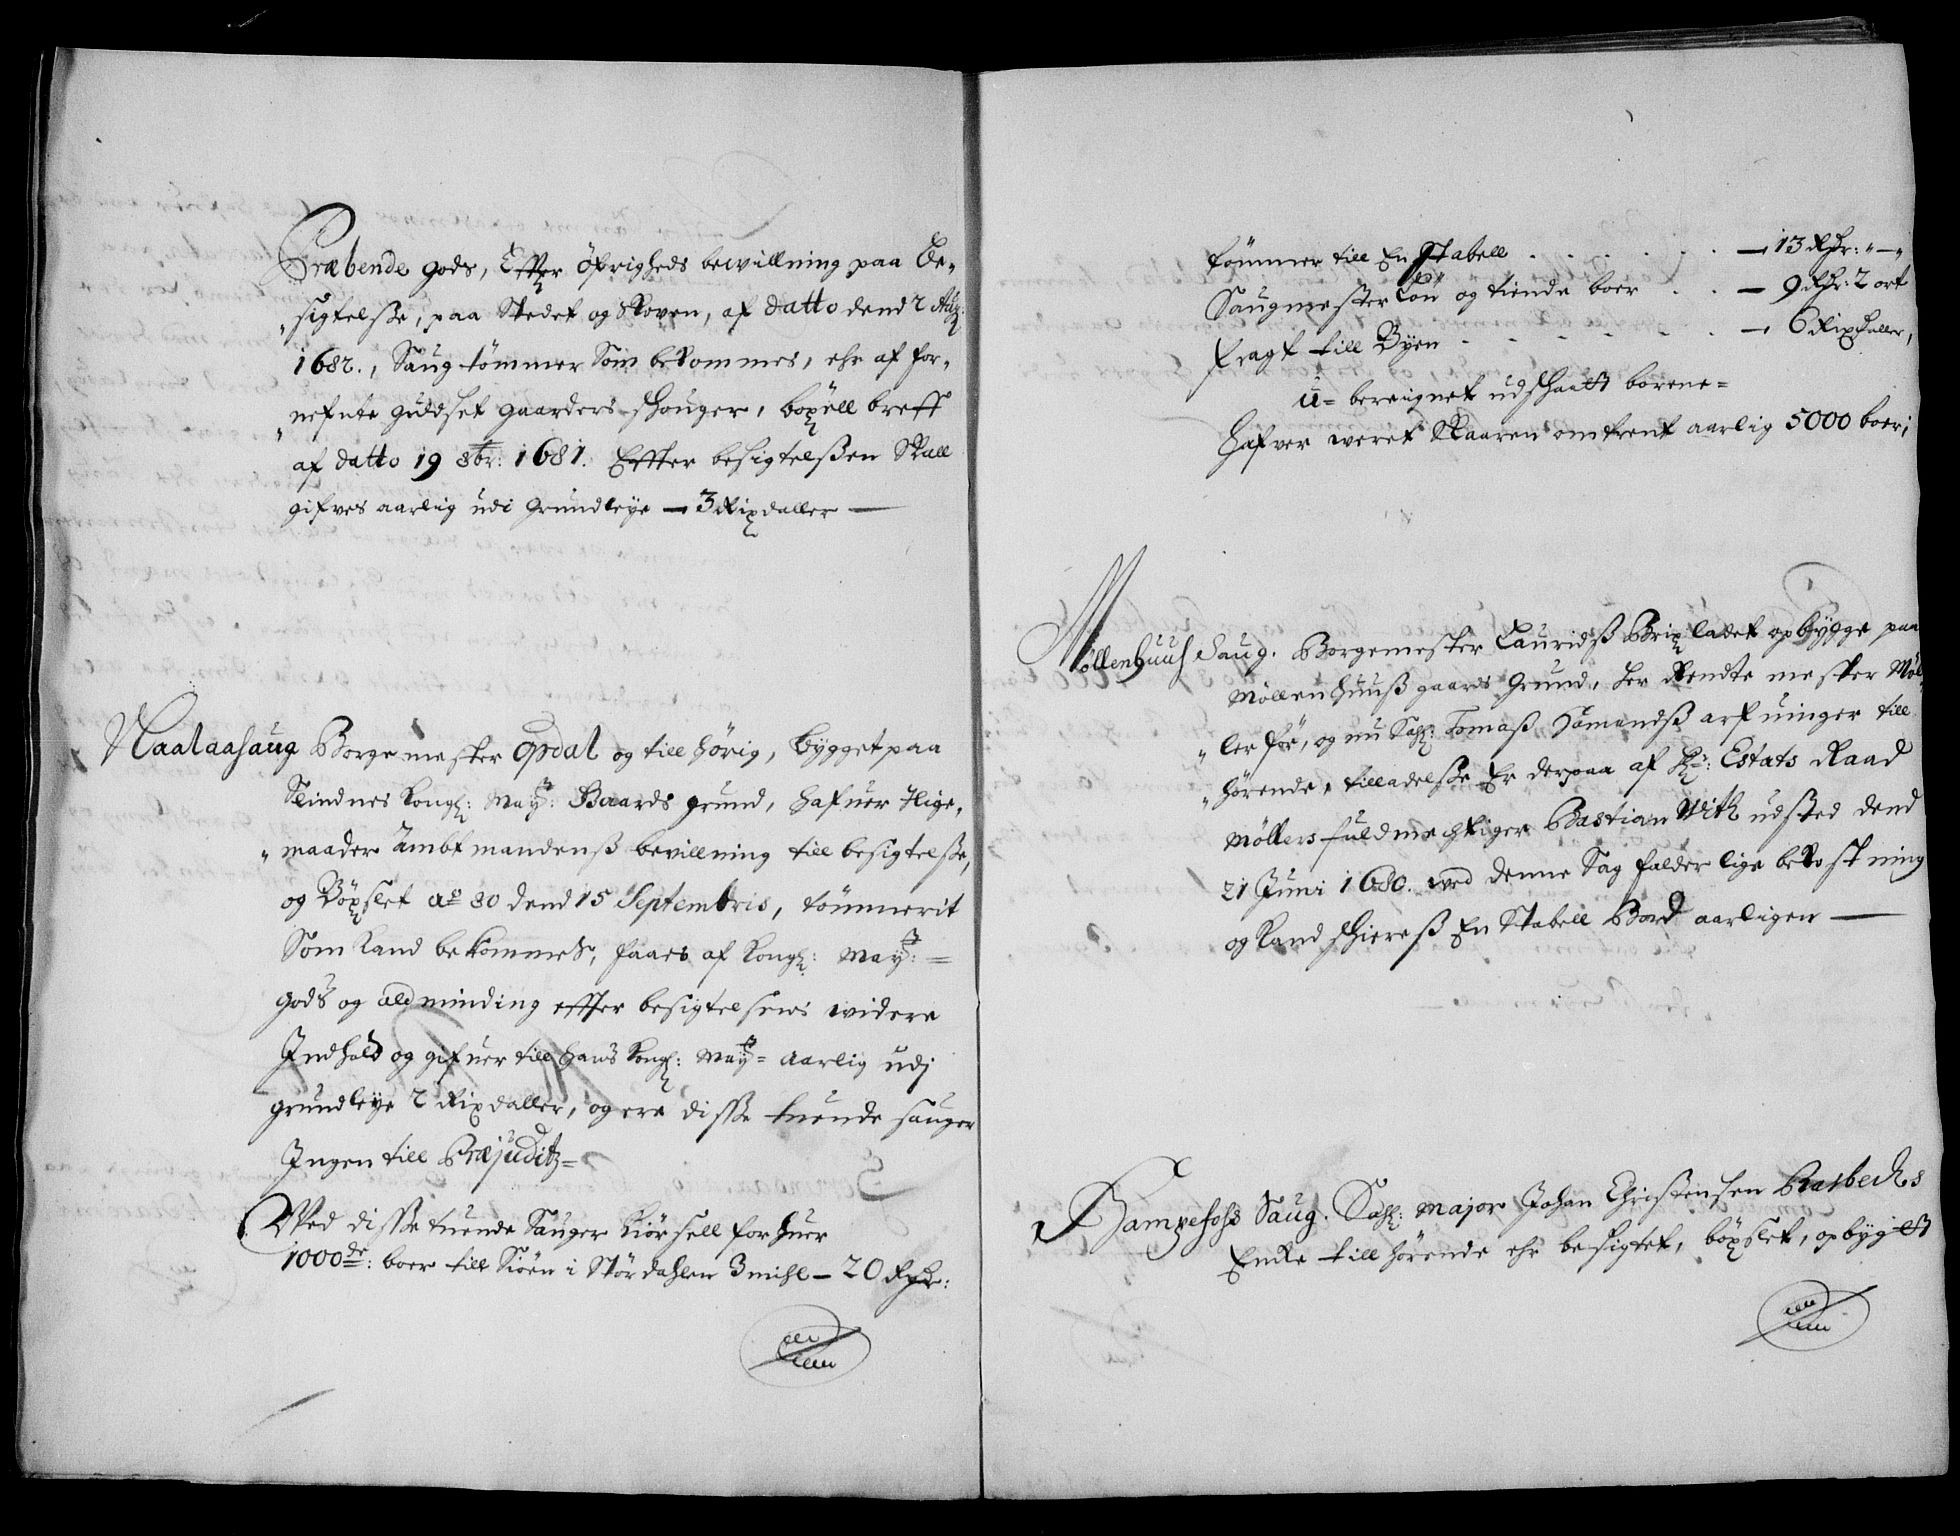 Præbende gods, Effter Öfrigheds bewillning paa Be„
„sigtelsse, paa Stedet og Skoven, af datto dend 2 Aug:
1682., Saug tömmer Som bekommes, ehr af for„
„nefnte guldset gaarders skouger, böxell breff
af datto 19 8br: 1681. Effter besigtelsßen Skall
gifves aarlig udi Grundleye — 3 Rixdaller —
Naalaasaug Borgemester Opdal og till hörig, bygget paa
Slindnes Kongl: May: Baards grund, hafuer Ilige„
„maader Ambtmandenß bevillning till besigtelsße,
og Böxslet ao 80 dend 15 Septembris, tömmerit
Som Kand bekommes, faaes af Kongl: May: =
gods og aldminding effter besigtelsens widere
Indhold og gifuer till hans Kongl: May= aarlig udj
grundleye 2 Rixdaller, og ere disse tuende sauger
Ingen till Præjuditz=
Wed disse tuende Sauger Kiörsell for huer
1000de: boer till Siöen i Stördahlen 3 mihl — 20 Rdr:
tömmer till En Stabell . . . . . — 13 Rdr: „ — „
Saugmester Lön og tiende boer . . — 9 Rdr: 2 ort
fragt till Byen . . . . . . — 6 Rixdaller,
u= bereignet udskaatt borene=
Hafver weret Skaaren omtrent aarlig 5000 boer;
Möllenhuus Saug. Borgemester Lauridß Brix ladet opbygge paa
Möllenhuuß gaards Grund, her Rendtemester Möl„
„ler for, og nu Sahl: Tomaß Hamandß arfuinger till
„hörende, tilladelsße Er derpaa af Hr: Estats Raad
Möllers fuldmechtiger Bastian With udsted dend
21 Juni 1680. wed denne Sag falder lige bekostning
og Kand skiereß En Stabell Bord aarligen —
Hampefohs Saug. Sahl: Major Johan Christensen Basbechs
Encke till hörende ehr besigtet, böxslet, opbygett